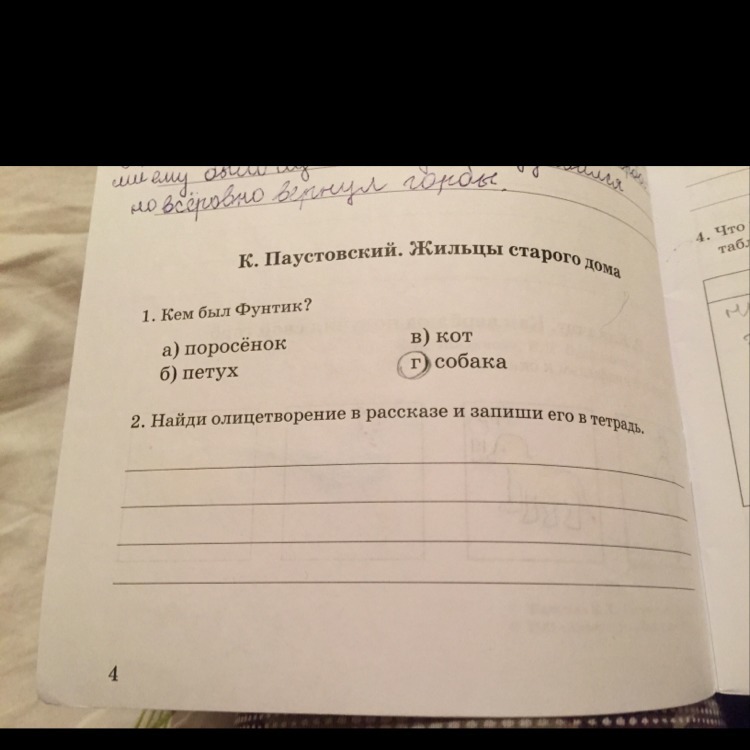 но всёровно вернул горбы.
К. Паустовский. Жильцы старого дома
1. Кем был Фунтик?
а) поросёнок
б) петух
в) кот
г) собака
2. Найди олицетворение в рассказе и запиши его в тетрадь.
4
4. Что
табл